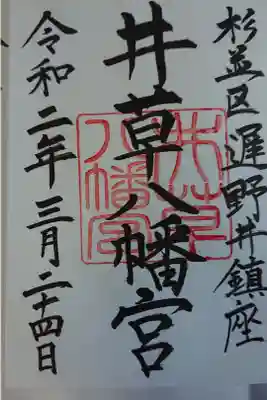 杉並区遅野井鎮座
井草八幡宮
井草八幡宮
令和二年三月二十四日